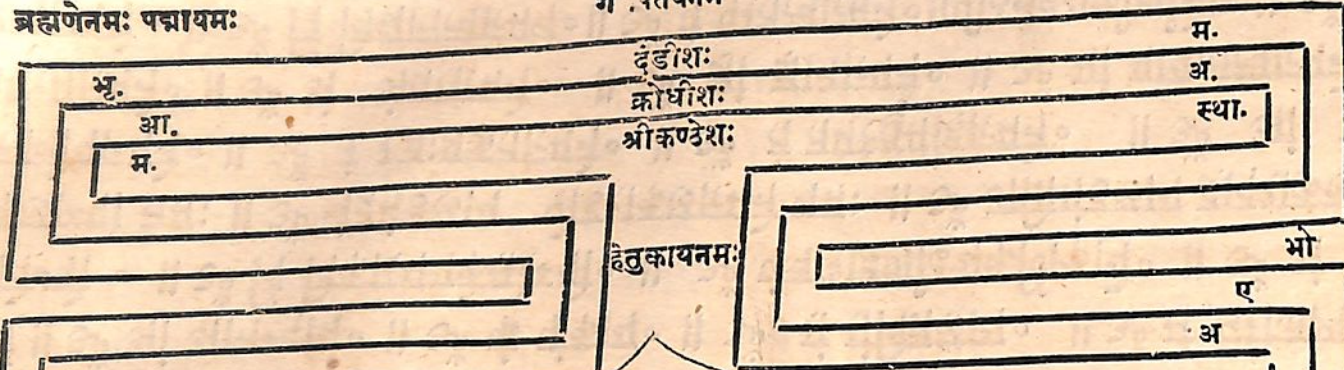 ब्रह्मणेनमः पद्मायमः
दंडीशः म.
भृ. क्रोधीशः अ.
आ. श्रीकण्ठेशः स्था.
म.
हेतुकायनमः भो
ए
अ